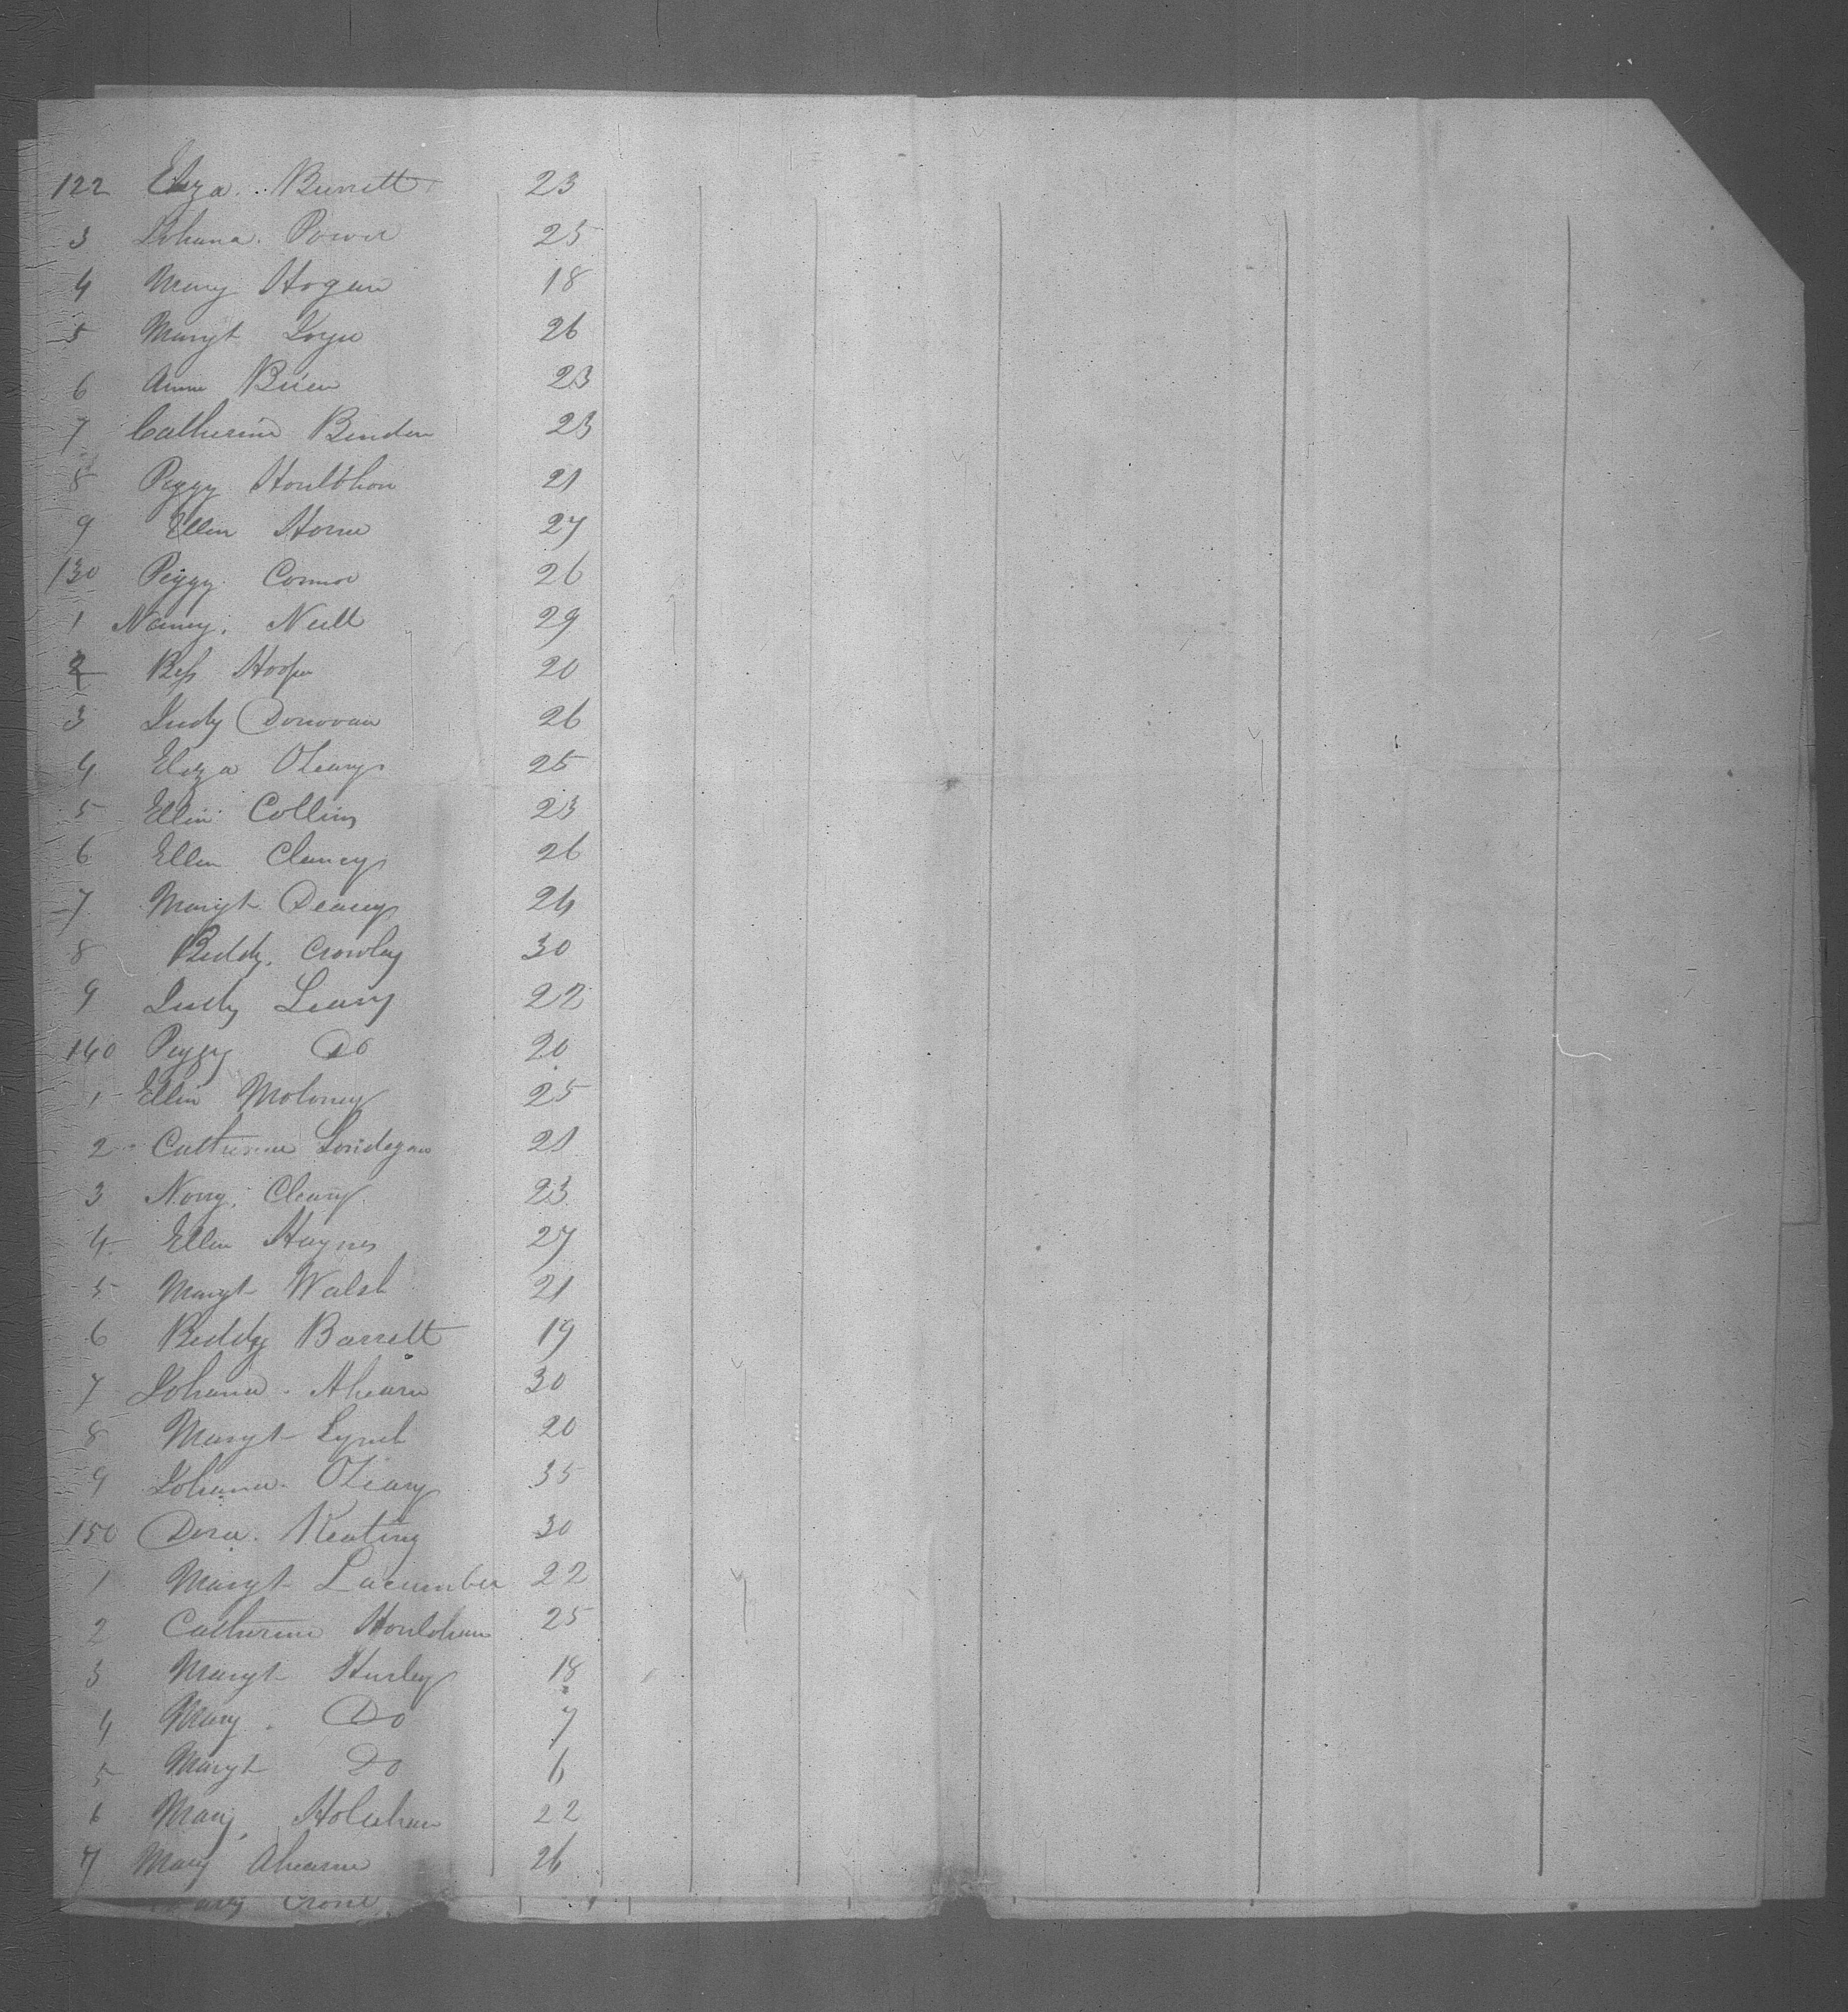 122 Eliza Burrett 23
3 Johana Power 25
4 Mary Hogan 18
5 Margt 26
6 Anne Brien 23
7 Catherine Binden 23
8 Peggy 21
9 Ellen Horne 27
130 Peggy Connor 26
1 Nancy Neill 29
2 Bess Hooper 20
3 Judy Donovan 26
4 Eliza OLeary 25
5 Ellin Collins 23
6 Ellen Clancy 26
7 Margt Deacy 24
8 Biddy Crowley 30
9 Judy Leary 22
140 Peggy Do 20
1 Ellin Moloney 25
2 Catherine Londegan 21
3 Nory Cleary 23
4 Ellen Haynes 27
5 Margt Walsh 21
6 Biddy Barrett 19
7 Johana Ahearn 30
8 Margt Lynch 20
9 Johana OLeary 35
150 Dora Keating 30
1 Margt Lacumber 22
2 Catherine Houlohan 25
3 Margt Hurley 18
4 Mary Do 7
5 Margt Do 6
6 Mary Holuhan 22
7 Mary Ahearne 26
Crone